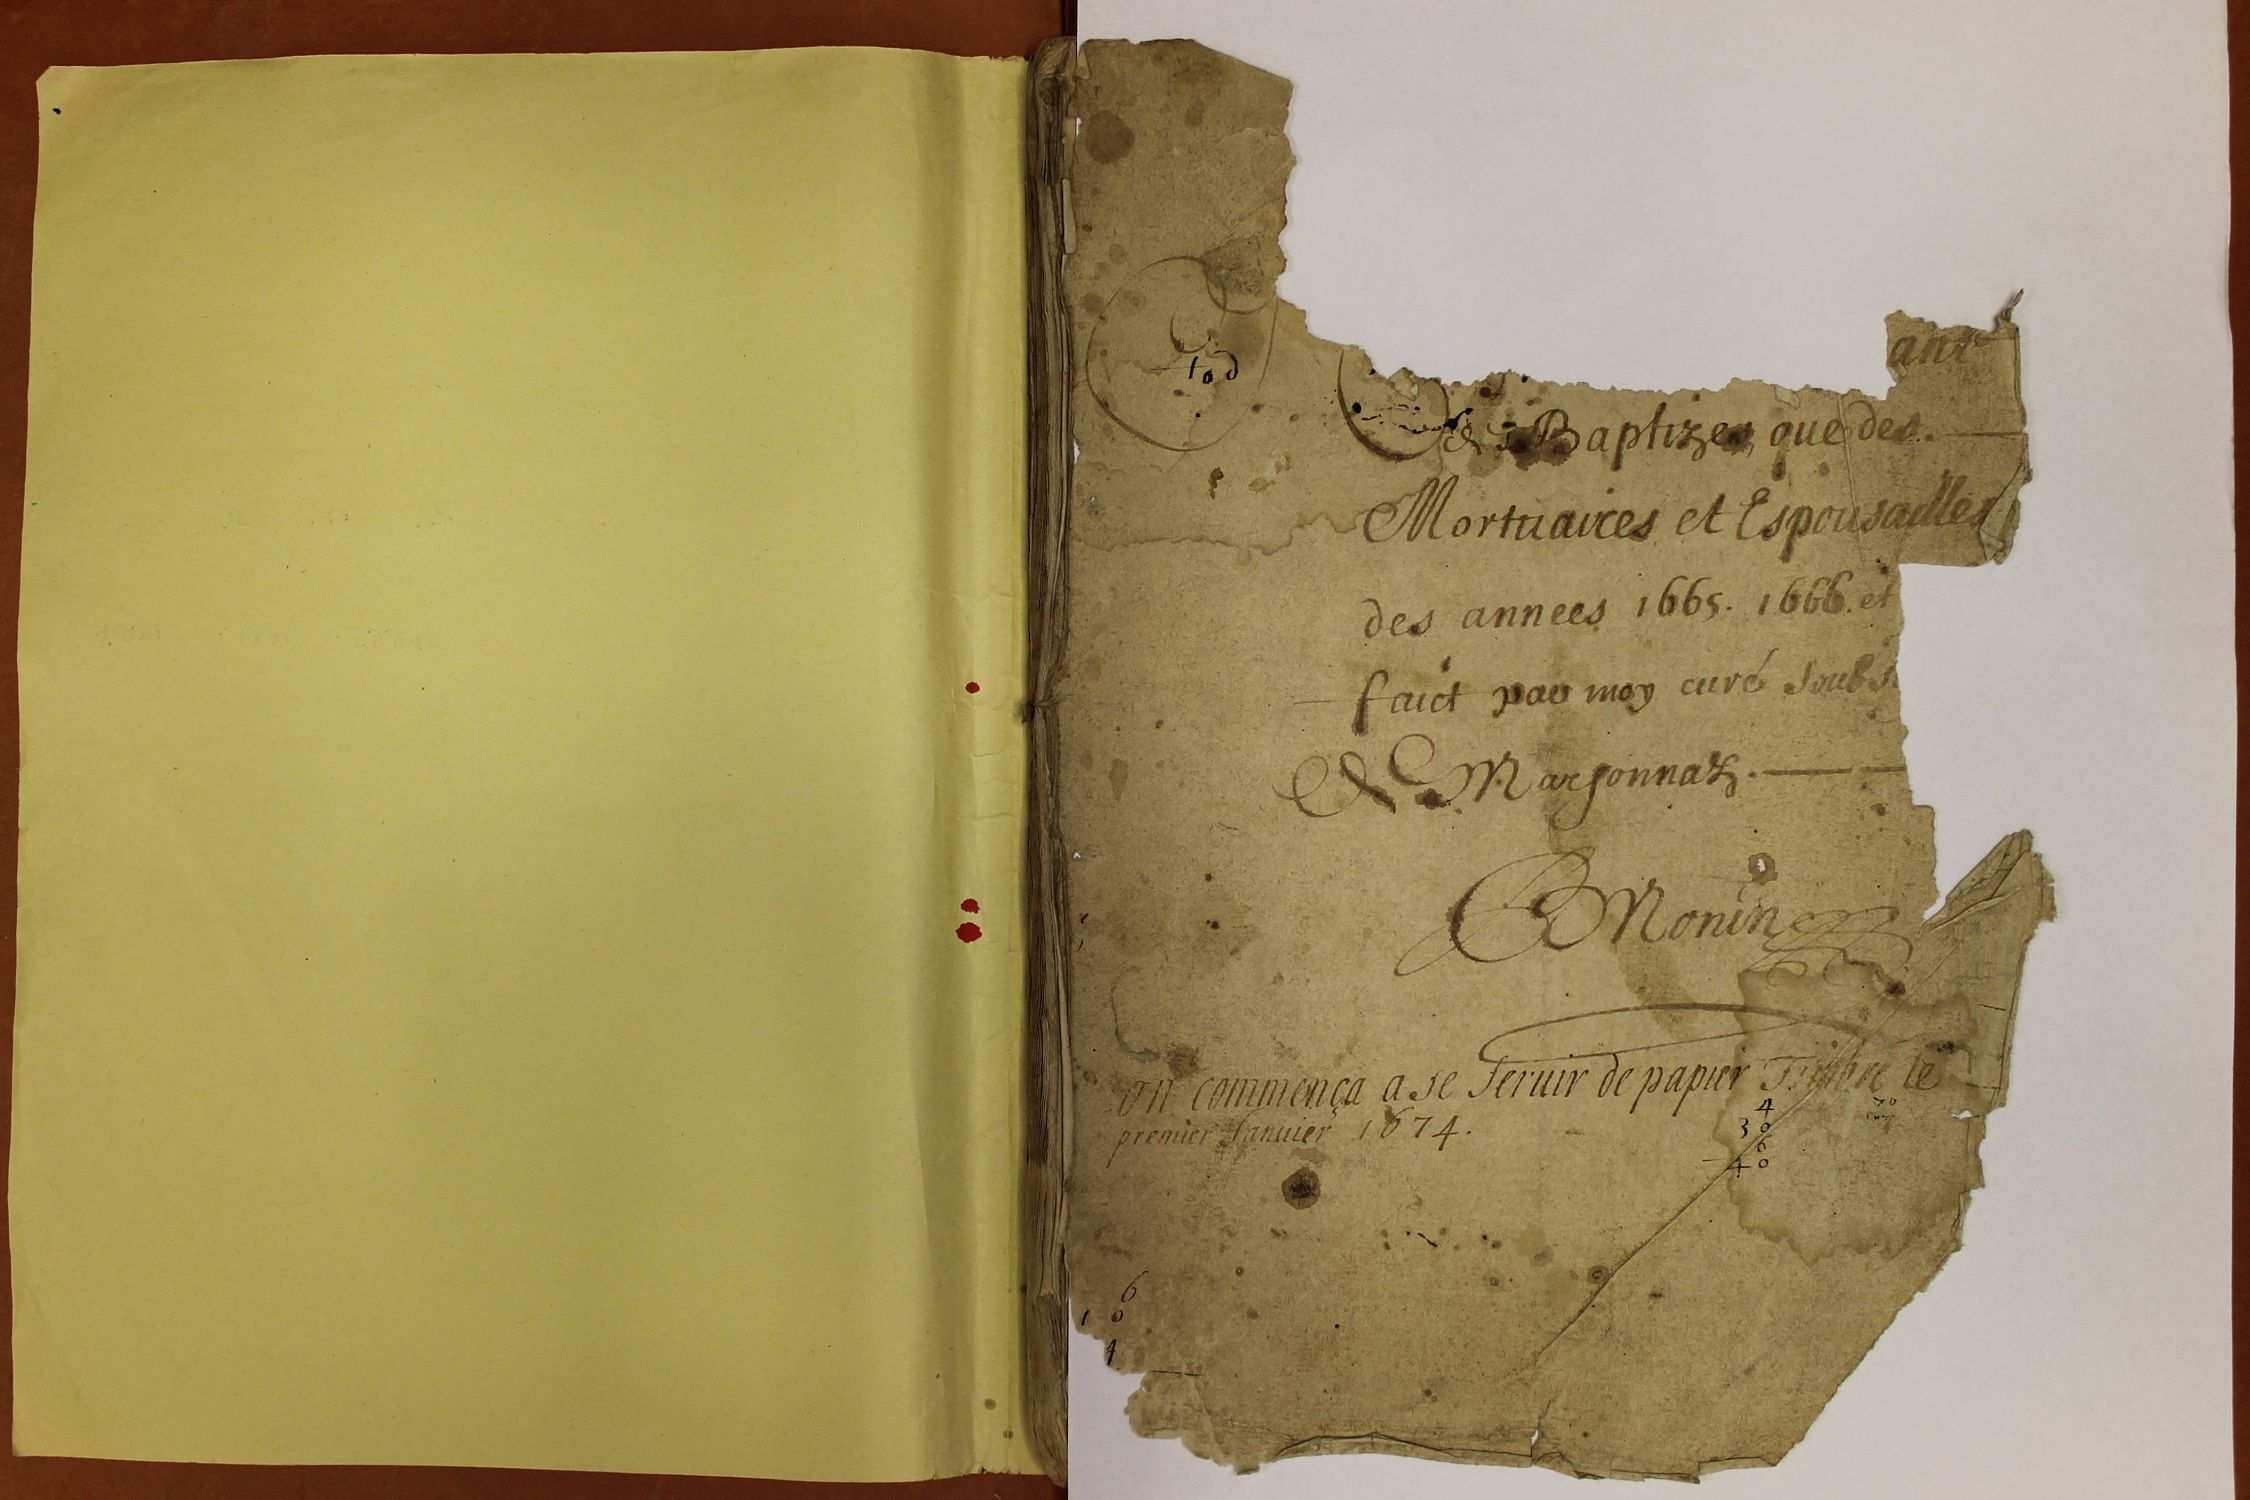 ant
des Baptizes, que des.
Mortuaires et Espousailles
des annees 1665. 1666. et
faict par moy curé soubs.
de Marsonnaz.
Monin
100
on commença a se seruir de papier Timbre le
premier Januier 1674.
4
30
6
40
6
10
4